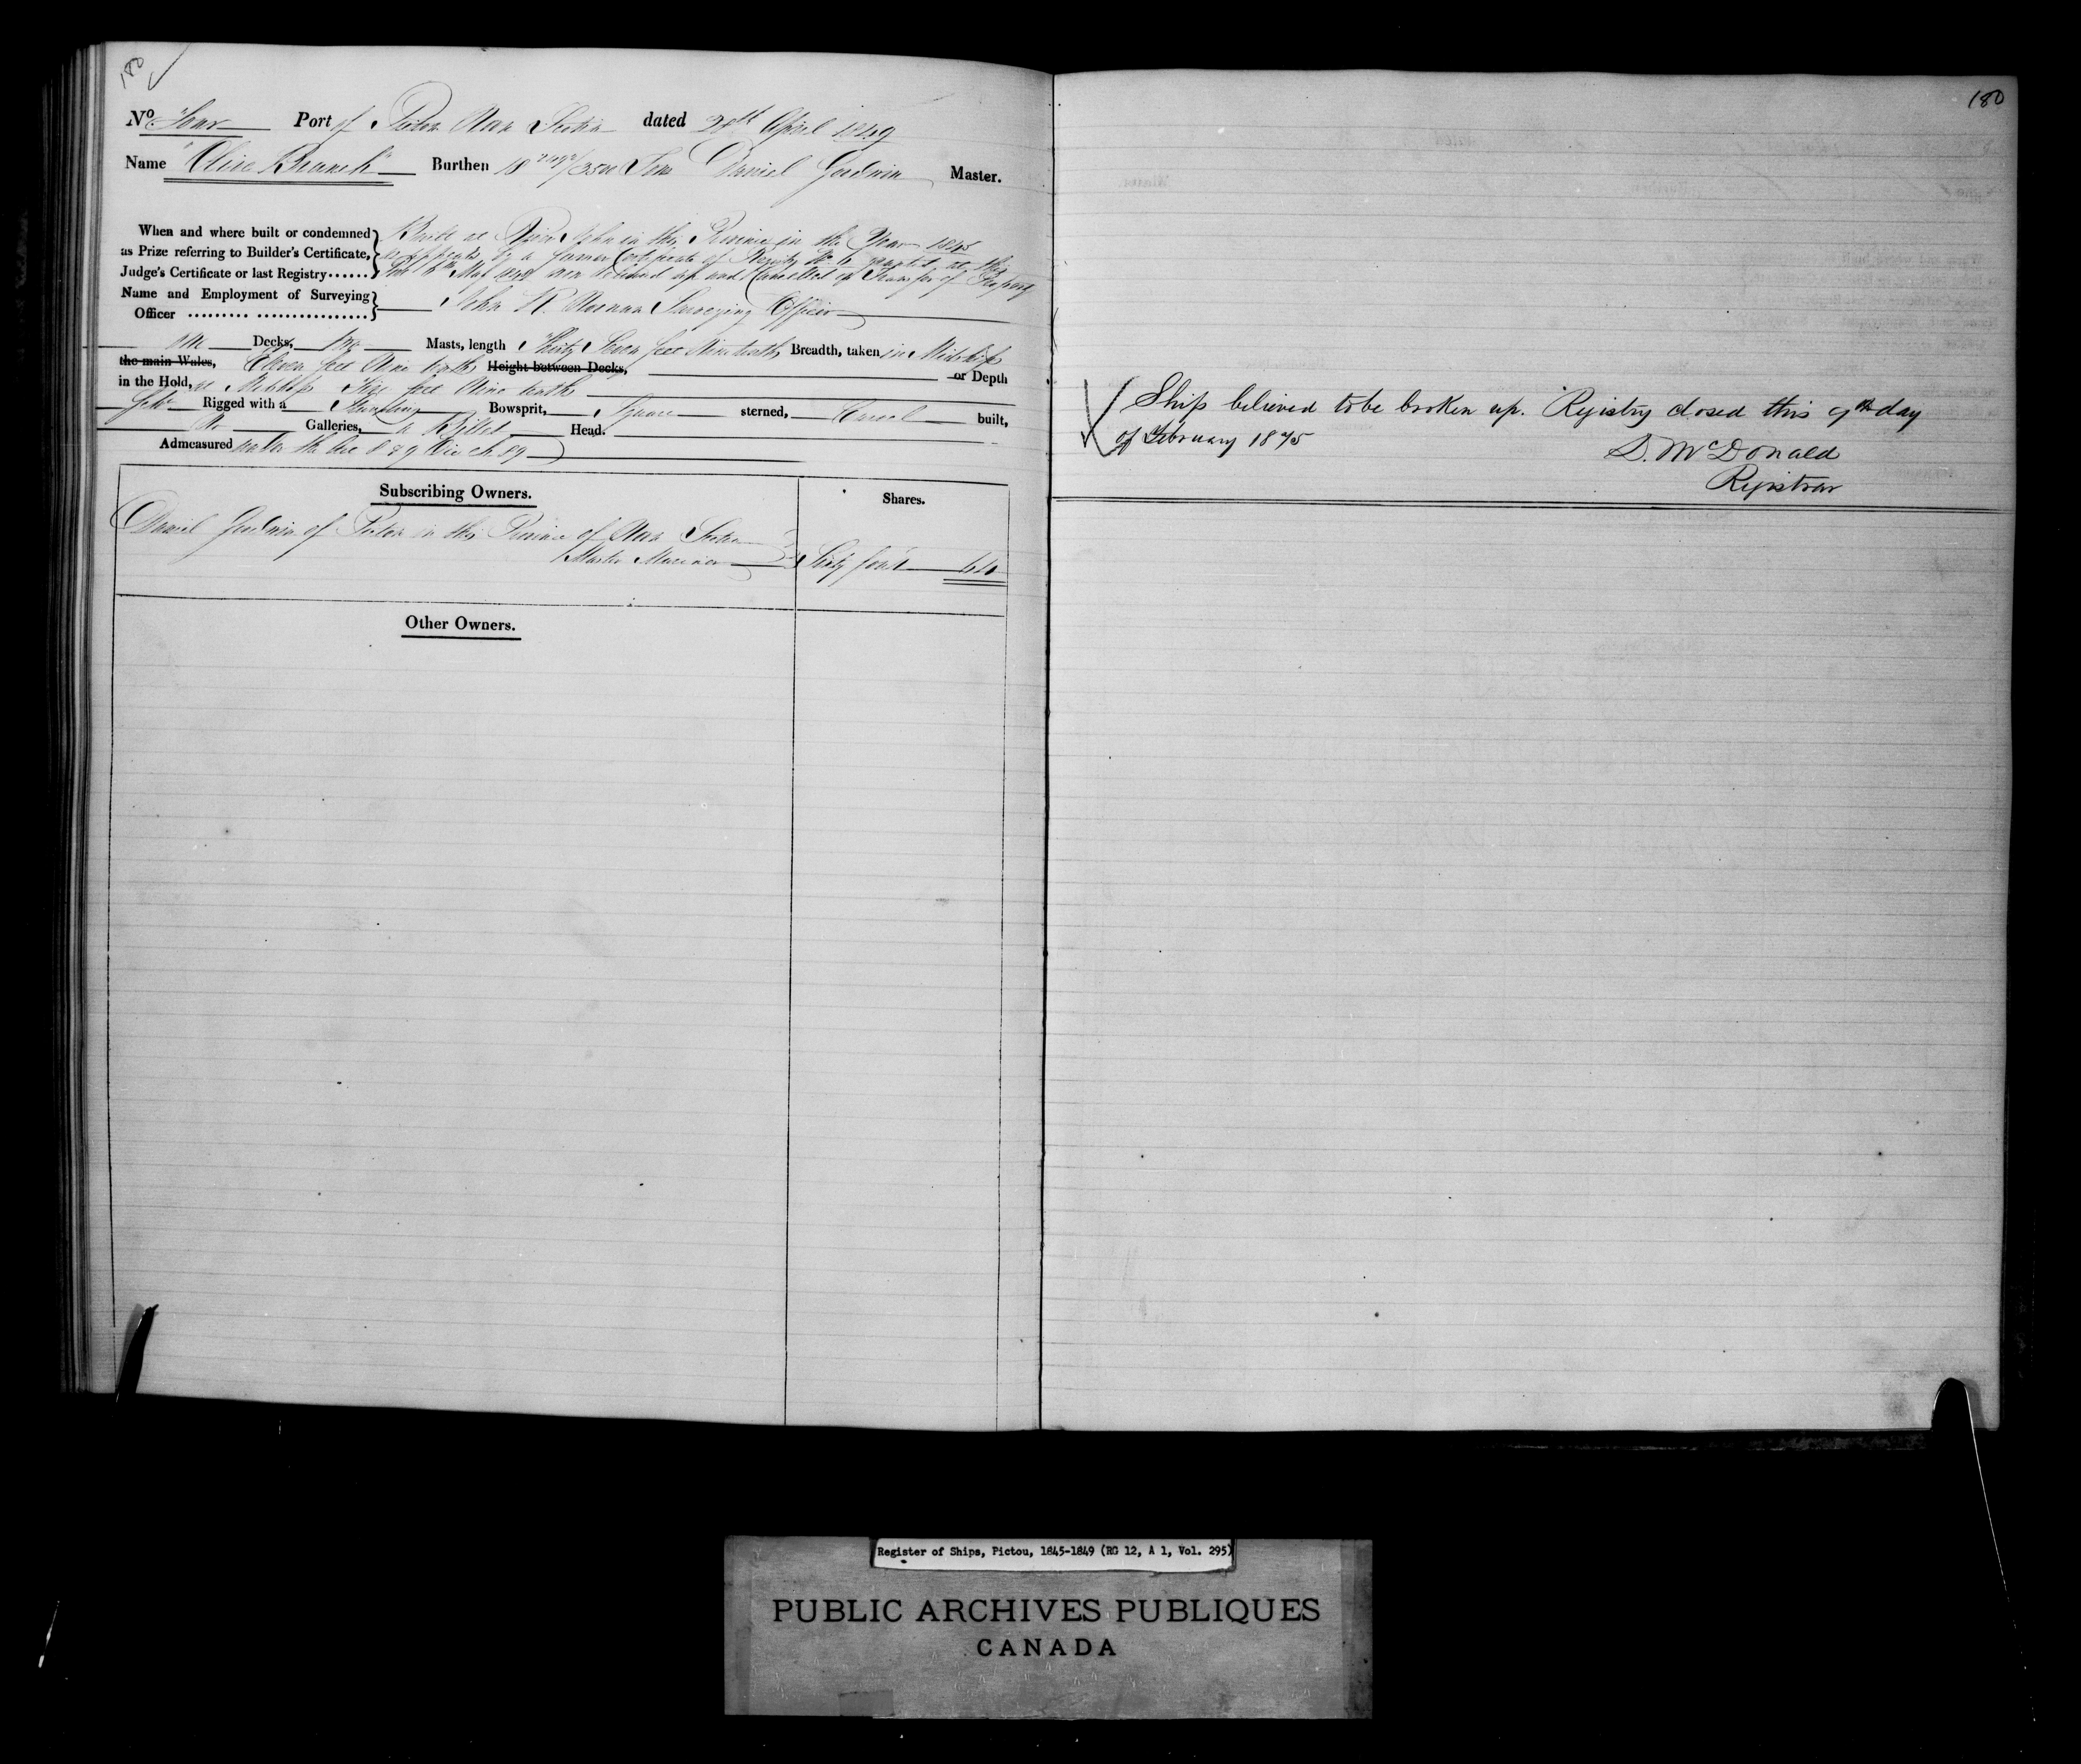 180
No Four Port of Pictou Nova Scotia dated 28th April 1849
Name "Olive Branch" Burthen 18 /3500 Tons Daniel Goodwin Master.
When and where built or condemned
as Prize referring to Builder's Certificate,
Judge's Certificate or last Registry......
Built at River John in this Province in the Year 1845
as appears by a former Certificate of Registry No 6 granted at this
Port May now delivered up and Cancelled on Transfer of Property
Name and Employment of Surveying
Officer ......... ................
John Surveying Officer
one Decks, two Masts, length Thirty Seven feet Nine tenths Breadth, taken in Midships
the main Wales, Eleven feet Nine tenths Height between Decks, or Depth
in the Hold, at Midships Five feet Nine tenths
Rigged with a Standing Bowsprit, Square sterned, Carvel built,
No Galleries, a Billet Head.
Admeasured under the Act 8 & 9 Vic ch. 89
Subscribing Owners.
Shares.
Daniel Goodwin of Pictou in this Province of Nova Scotia
Master Mariner Sixty four 64
Other Owners.
180
Ship believed to be broken up. Registry closed this 9th day
of February 1875
D. McDonald
Registrar
Register of Ships, Pictou, 1845-1849 (RG 12, A 1, Vol. 295)
PUBLIC ARCHIVES PUBLIQUES
CANADA